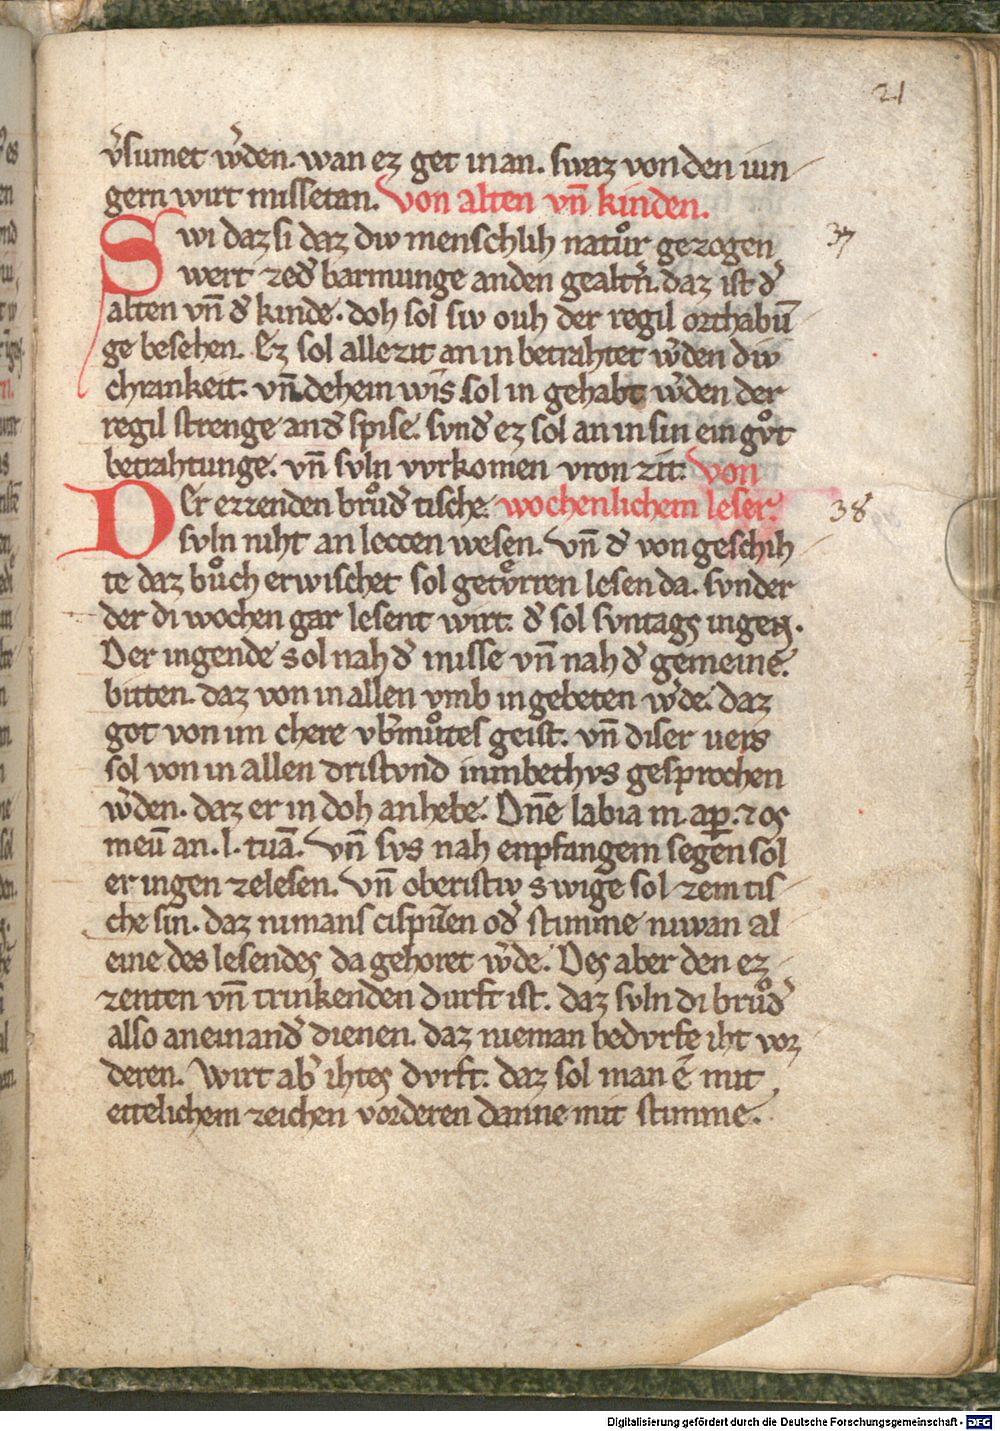 21
v̓sumet w̓den. wan ez get in an. swaz von den iun
gern wirt missetan. von alten vn̄ kinden.
Swi daz si daz div menschlih natuͦr gezogen 37
wert zed̓ barmunge an den gealtn̓. daz ist d̓
alten vn̄ d̓ kinde. doh sol siv ouh der regil orthabū
ge besehen. Ez sol alle zit an in betrahtet w̓den div
chrankeit. vn̄ dehein wis sol in gehabt w̓den der
regil strenge an d̓ spise. svnd̓ ez sol an in sin ein guͦt
betrahtunge. vn̄ svln vvrkomen vron zit. von
Der ezzenden bruͦd̓ tische. wochenlichem leser. 38
svln niht an leccen wesen. Vn̄ d̓ von geschih
te daz buͦch erwischet sol getvͤrren lesen da. svnder
der di wochen gar lesent wirt. d̓ sol svntags ingen.
Der ingende sol nah d̓ misse vn̄ nah d̓ gemeine.
bitten. daz von in allen vmb in gebeten w̓de. daz
got von im chere vb̓muͦtes geist. vn̄ diser uers
sol von in allen dristvnd in inbethvs gesprochen
w̓den. daz er in doh an hebe. Dn̄e labia m. ap̄. ⁊ os
meū an. l. tuā. Vn̄ svs nah enpfangem segen sol
er ingen zelesen. Vn̄ oberistiv swige sol zem tis
che sin. daz nimans cispiłen od̓ stimme niwan al
eine des lesendes da gehoret w̓de. Des aber den ez
zenten vn̄ trinkenden durft ist. daz svln di bruͦd̓
also an einand̓ dienen. daz nieman bedvrfe iht vor
deren. Wirt ab̓ ihtes dvrft. daz sol man ē mit
ettelichem zeichen vorderen danne mit stimme.
Digitalisierung gefördert durch die Deutsche Forschungsgemeinschaft - DFG